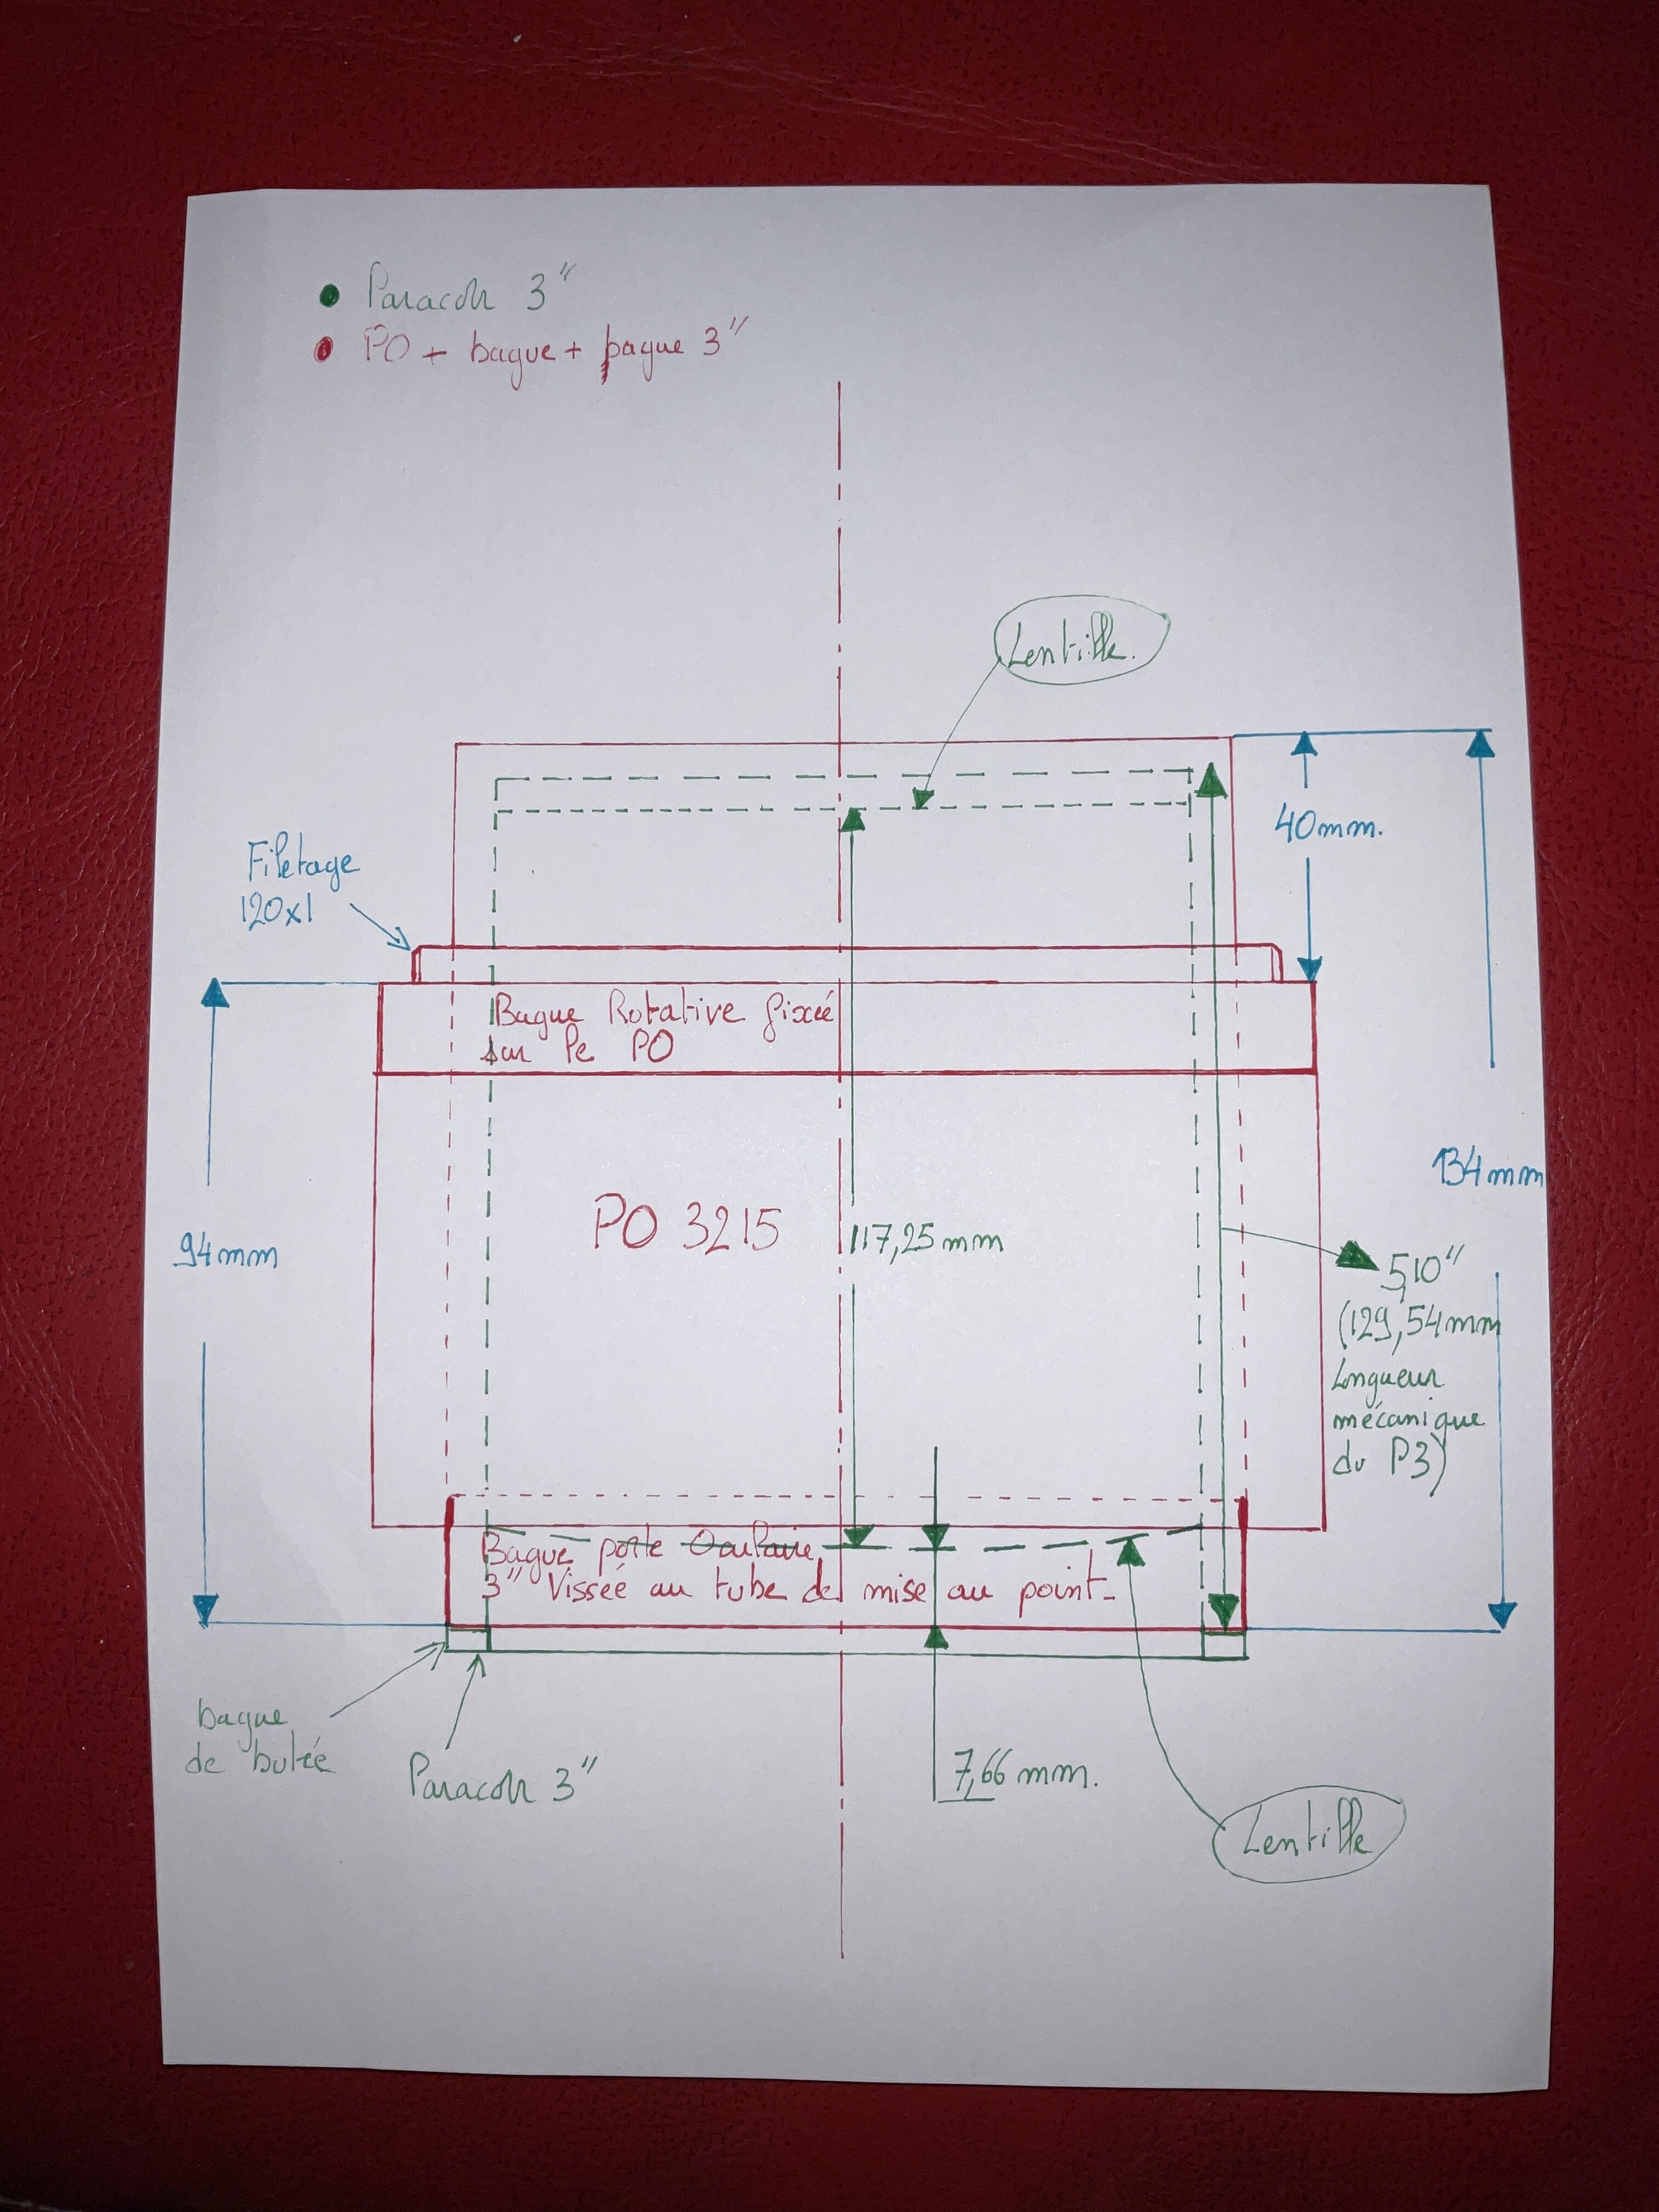 Paracorr 3"
PO + bague + bague 3"
Lentille.
40mm.
Filetage
120x1
Bague Rotative fixée
sur le PO
134mm
PO 3215
117,25mm
94mm
5,10"
(129,54mm
Longueur
mécanique
du P3)
Bague porte Oculaire
3" Vissée au tube de mise au point-
bague
de butée
Paracorr 3"
7,66 mm.
Lentille